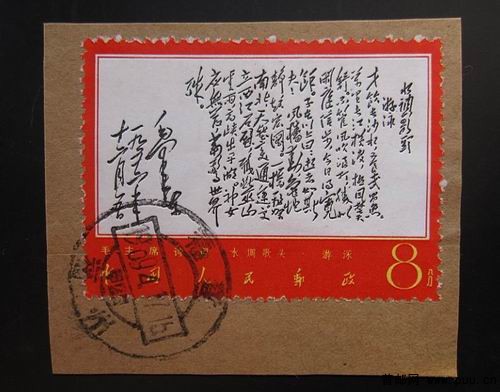 水调歌头
游泳
才饮长沙水又食武昌鱼
万里长江横渡极目楚天
舒不管风吹浪打胜似
闲庭信步今日得宽
馀子在川上曰逝者如斯
夫风樯动龟蛇
静起宏图一桥飞架
南北天堑变通途更
立西江石壁截断巫山
云雨高峡出平湖神女
应无恙当惊世界
殊
毛泽东
一九五六年
十二月五日
毛主席诗词 水调歌头·游泳
中国人民邮政 8分